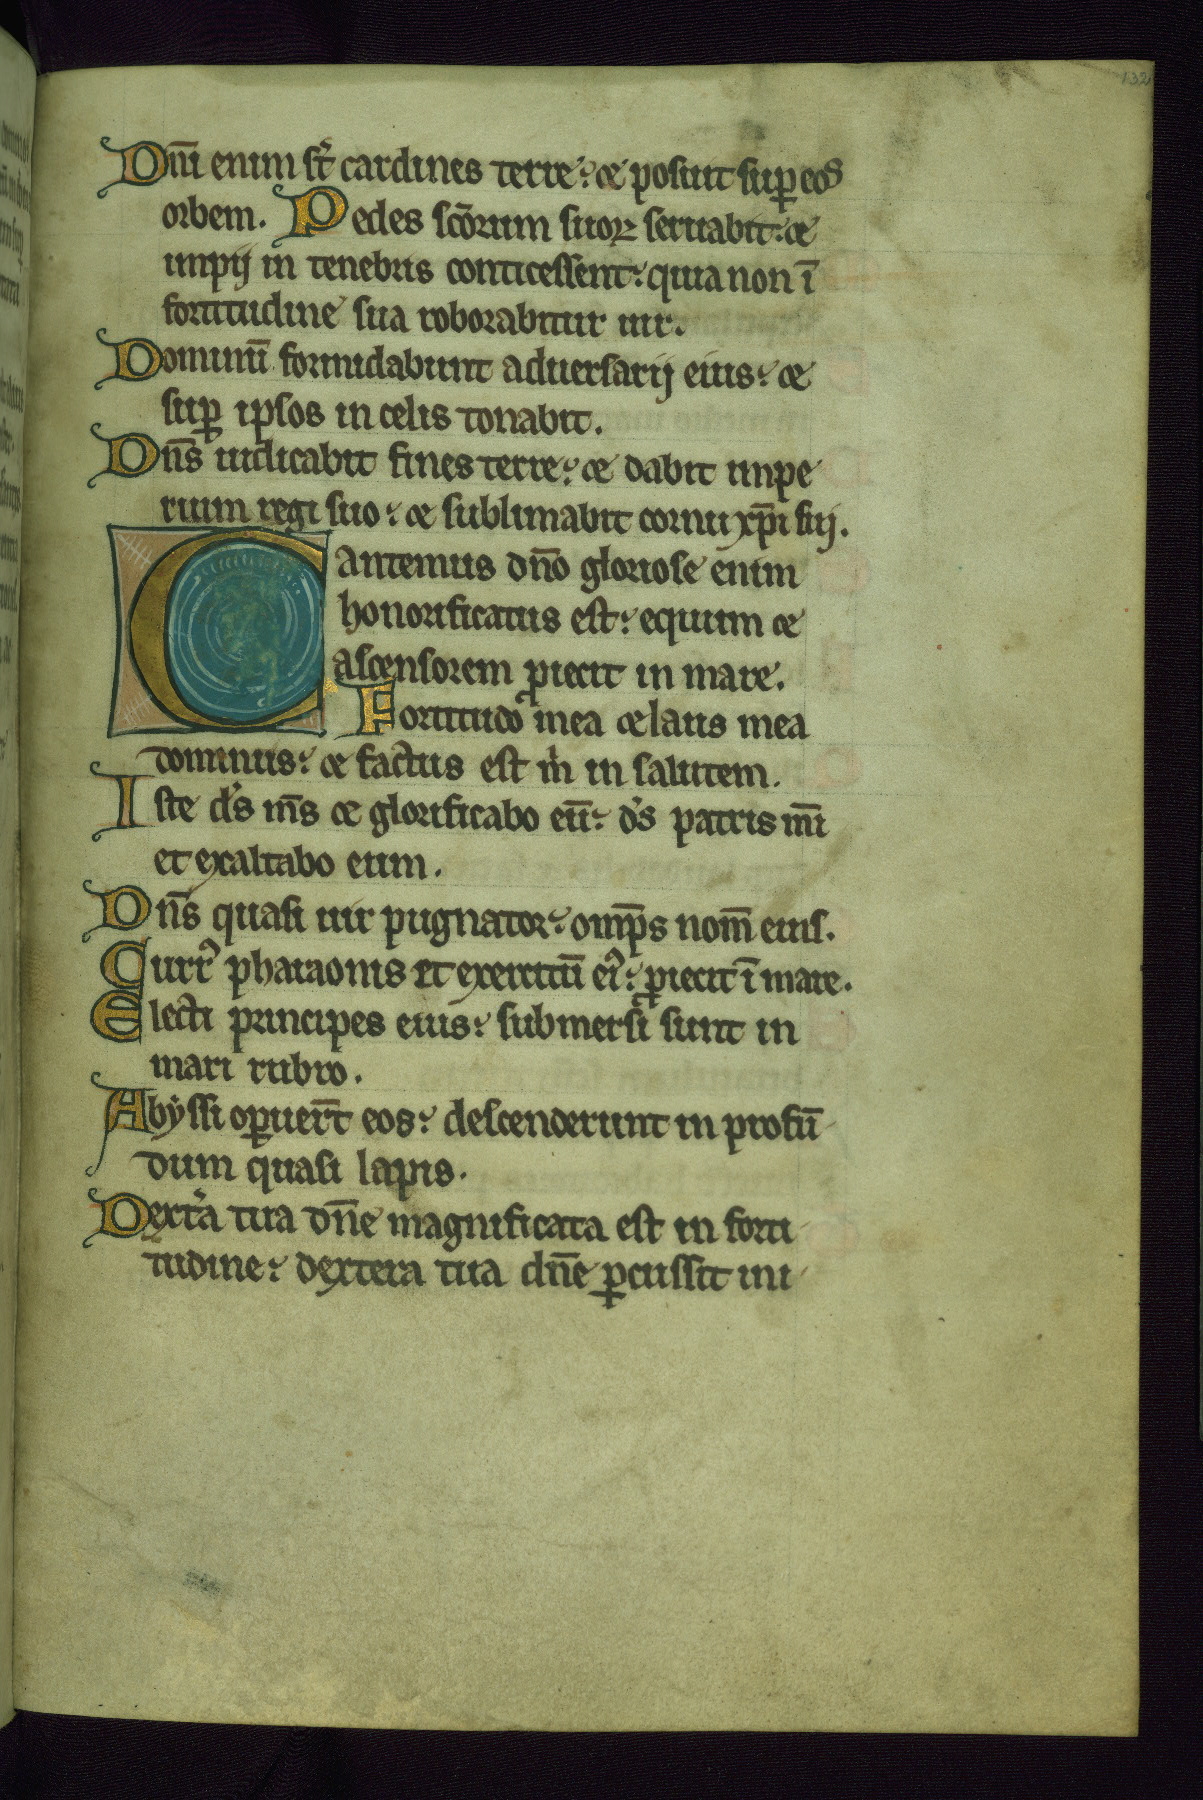 132
Dn̄i enim st̄ cardines terre: et posuit sup̱ eos
orbem. Pedes sc̄orum suoꝝ seruabit: et
impij in tenebris conticessent: quia non ī
fortitudine sua roborabitur uir.
Dominū formidabunt aduersarij eius: et
sup̱ ipsos in celis tonabit.
Dn̄s iudicabit fines terre: et dabit impe
rium regi suo: et sublimabit cornu xp̄i sui.
Cantemus dn̄o gloriose enim
honorificatus est: equum et
ascensorem ꝓiecit in mare.
Fortitudo mea et laus mea
dominus: et factus est m̄ in salutem.
Iste d̄s m̄s et glorificabo eū: d̄s patris mī
et exaltabo eum.
Dn̄s quasi uir pugnator: omp̄s nom̄ eius.
Curr᷒ pharaonis et exercitū ei᷒: ꝓiecit ī mare.
Electi principes eius: submersi sunt in
mari rubro.
Abyssi oꝑuer̄t eos: descenderunt in profū
dum quasi lapis.
Dext̄a tua dn̄e magnificata est in forti
tudine: dextera tua dn̄e ꝑcussit ini